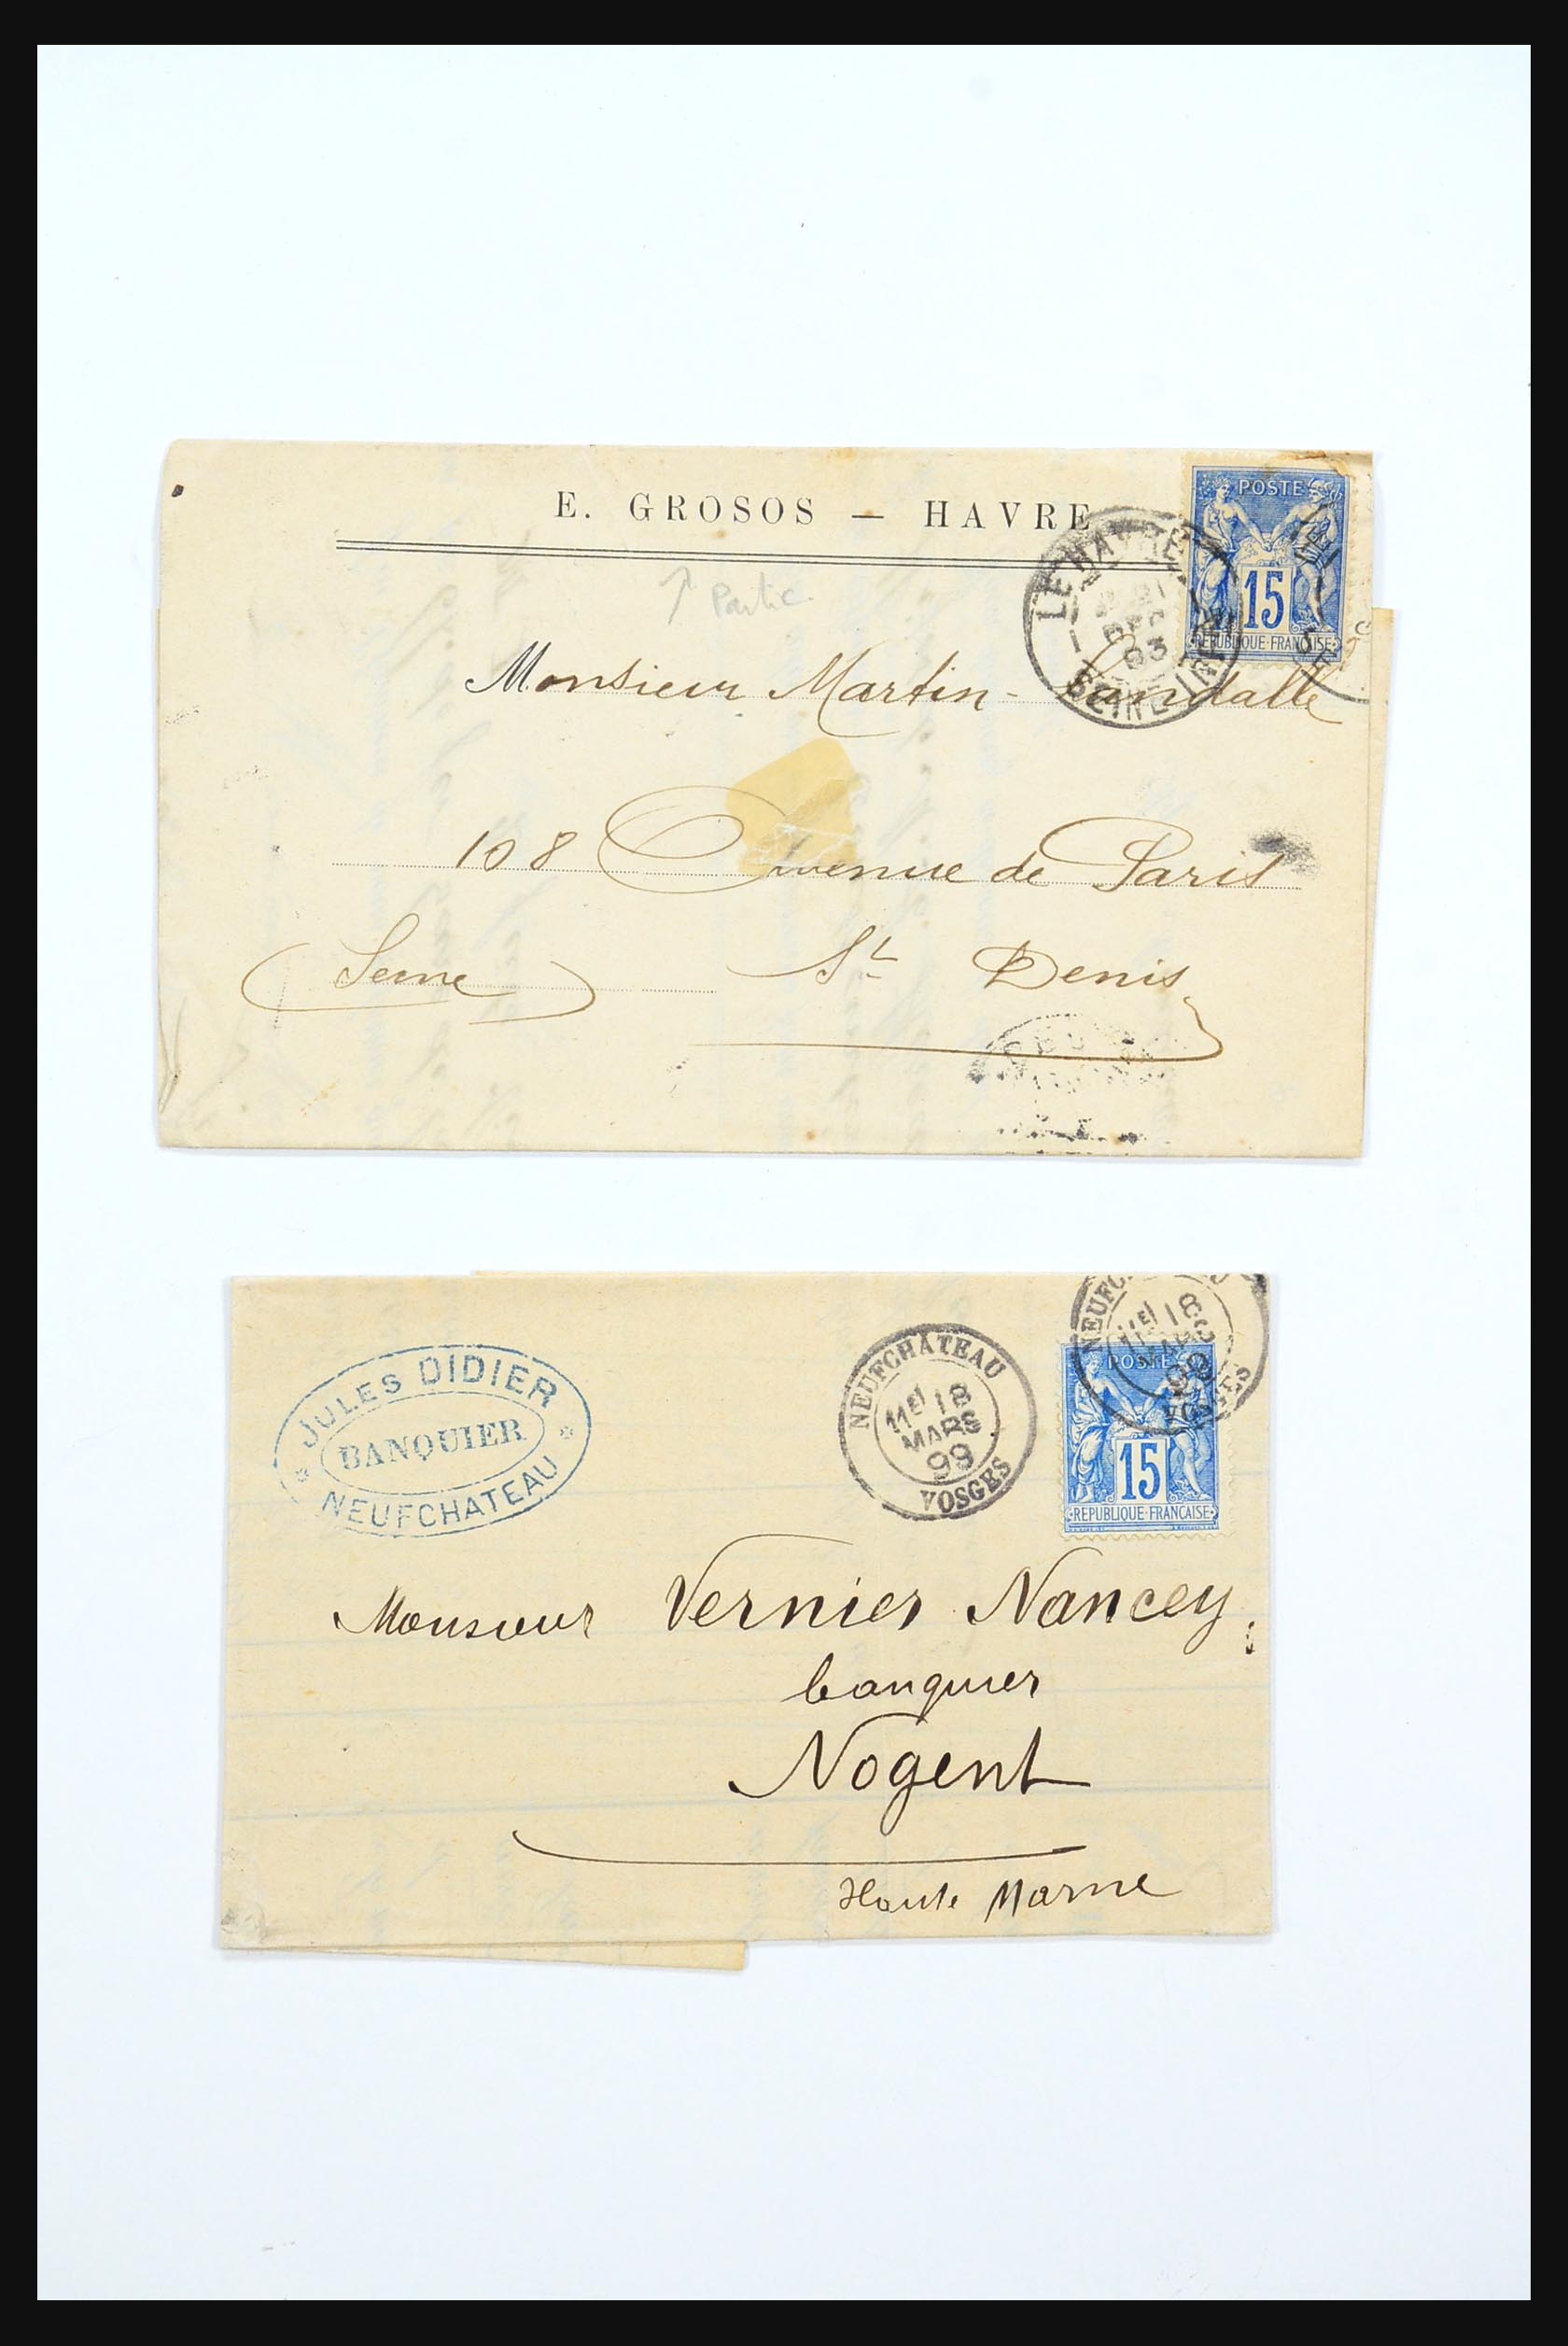 E. GROSOS — HAVRE
POSTE
15
REPUBLIQUE FRANÇAISE
LE HAVRE
DEC
93
SEINE INFRE
Partie
Monsieur Martin-
108 Avenue de Paris
(Seine) St Denis
JULES DIDIER
BANQUIER
NEUFCHATEAU
NEUFCHATEAU
11E 18
MARS
99
VOSGES
NEUFC
11E 18
MARS
99
VOSGES
POSTE
15
REPUBLIQUE FRANÇAISE
Monsieur Vernier Nancey
banquier
Nogent
Haute Marne